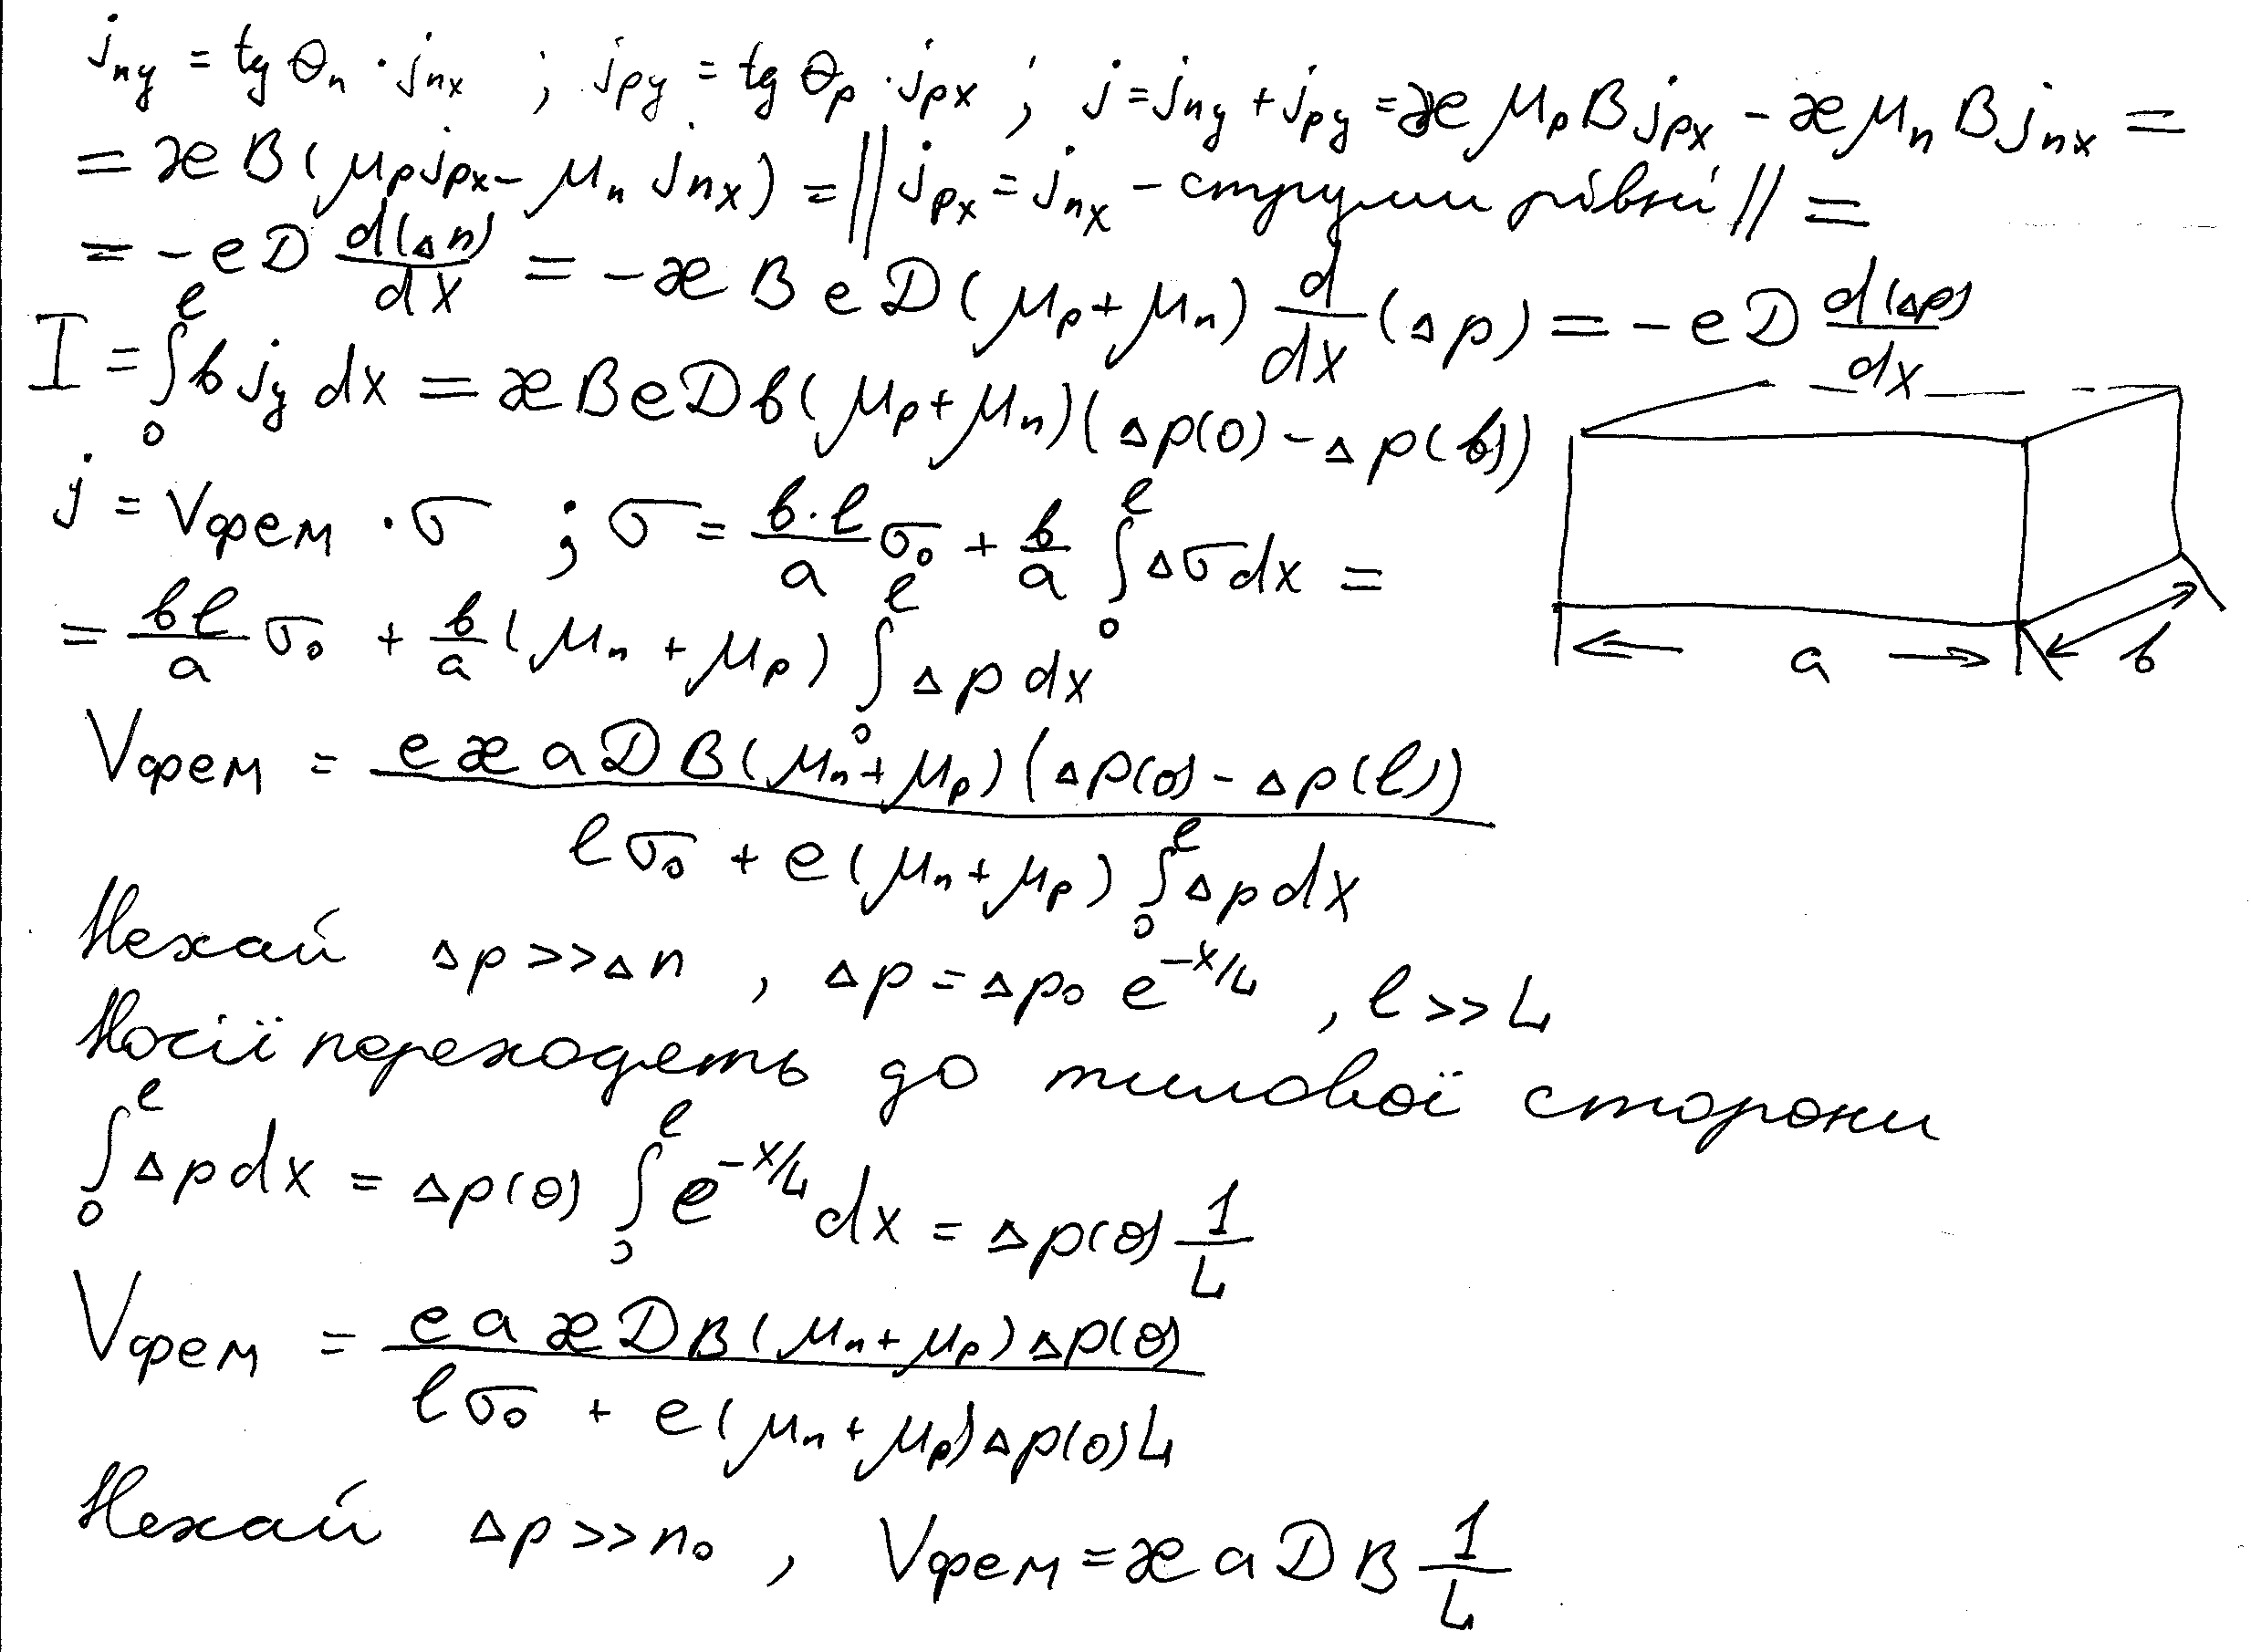 j_ny = tg Θ_n · j_nx ; j_py = tg Θ_p · j_px ; j = j_ny + j_py = æ μ_p B j_px − æ μ_n B j_nx =
= æ B (μ_p j_px − μ_n j_nx) = || j_px = j_nx − струми рівні || =
= − e D d(Δn)/dx = − æ B e D (μ_p + μ_n) d/dx (Δp) = − e D d(Δp)/dx
I = ∫₀^ℓ в j_y dx = æ B e D в (μ_p + μ_n)(Δp(0) − Δp(в))
j = V_фем · σ ; σ = в·ℓ/a σ₀ + в/a ∫₀^ℓ Δσ dx =
= вℓ/a σ₀ + в/a (μ_n + μ_p) ∫₀^ℓ Δp dx
a
в
V_фем = e æ a D B (μ_n + μ_p)(Δp(0) − Δp(ℓ)) / ℓσ₀ + e(μ_n + μ_p) ∫₀^ℓ Δp dx
Нехай Δp >> Δn , Δp = Δp₀ e^(−x/L) , ℓ >> L
Носії переходять до тилової сторони
∫₀^ℓ Δp dx = Δp(0) ∫₀^ℓ e^(−x/L) dx = Δp(0) 1/L
V_фем = e a æ D B (μ_n + μ_p) Δp(0) / ℓσ₀ + e(μ_n + μ_p) Δp(0) L
Нехай Δp >> n₀ , V_фем = æ a D B 1/L